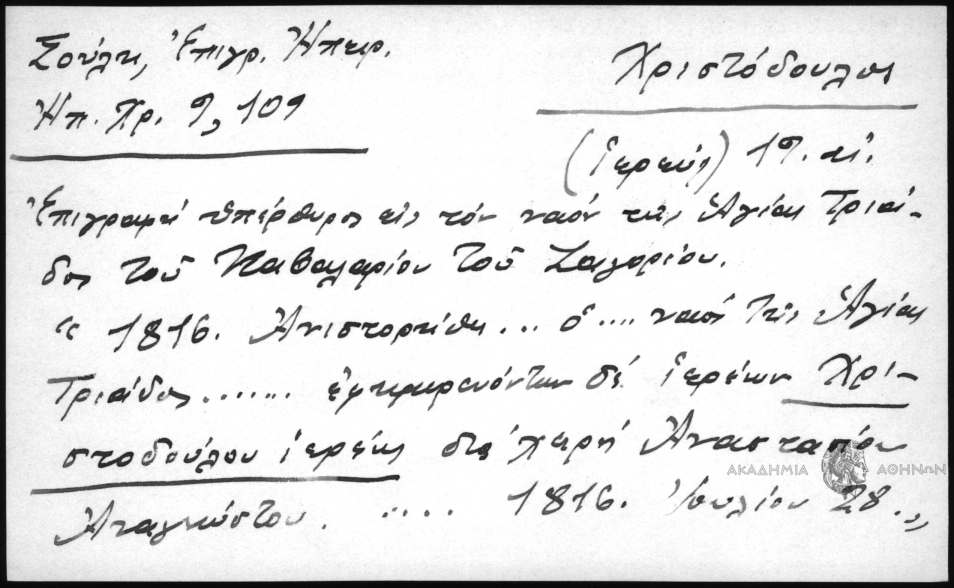 Σούλη, Ἐπιγρ. Ἠπειρ.
Ἠπ. Χρ. 9, 109
Χριστόδουλος
(ἱερεὺς) 19. αἰ.
Ἐπιγραφὴ ὑπέρθυρος εἰς τὸν ναὸν τῆς Ἁγίας Τριάι-
δος τοῦ Καβαλαρίου τοῦ Ζαγορίου.
" 1816. Ἀνιστορήθη ... ὁ .... ναὸς τῆς Ἁγίας
Τριάδος ....... ἐφημερευόντων δὲ ἱερέων Χρι-
στοδούλου ἱερέως διὰ χειρὸς Ἀναστασίου
Ἀναγνώστου. ..... 1816. Ἰουλίου 28. "
ΑΚΑΔΗΜΙΑ ΑΘΗΝΩΝ